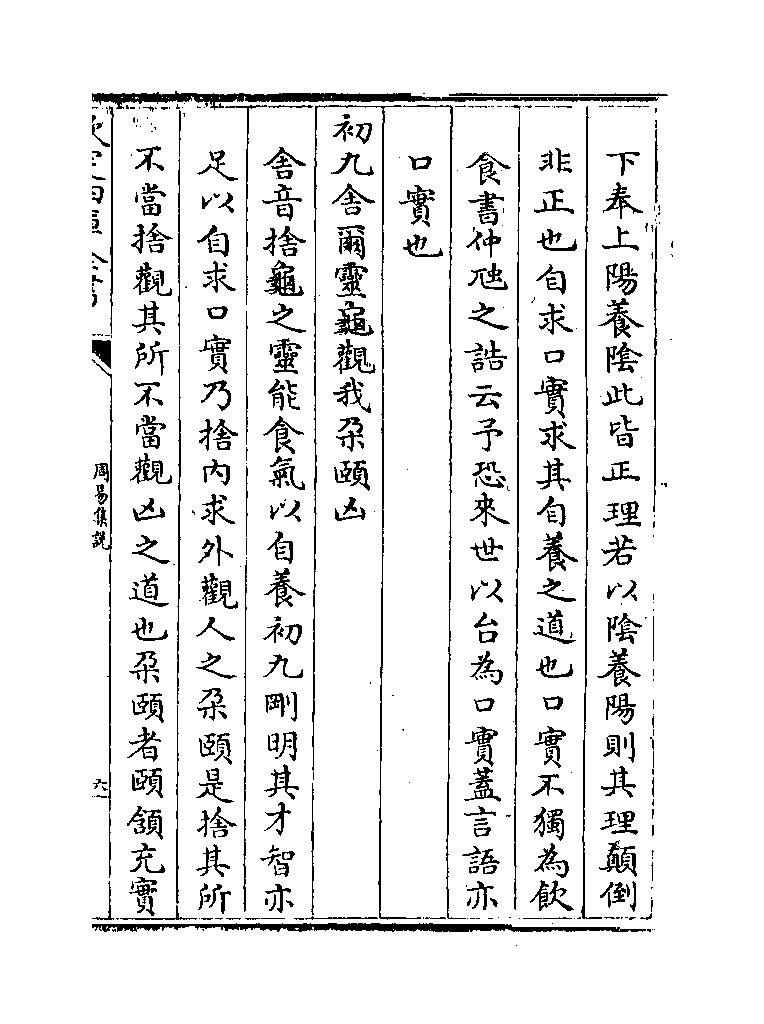 下奉上陽養陰此皆正理若以陰養陽則其理顛倒
非正也自求口實求其自養之道也口實不獨為飲
食書仲虺之誥云予恐來世以台為口實蓋言語亦
口實也
初九舍爾靈龜觀我朶頤凶
舍音捨龜之靈能食氣以自養初九剛明其才智亦
足以自求口實乃捨内求外觀人之朶頤是捨其所
不當捨觀其所不當觀凶之道也朶頤者頤頷充實
欽定四庫全書
周易集說
六